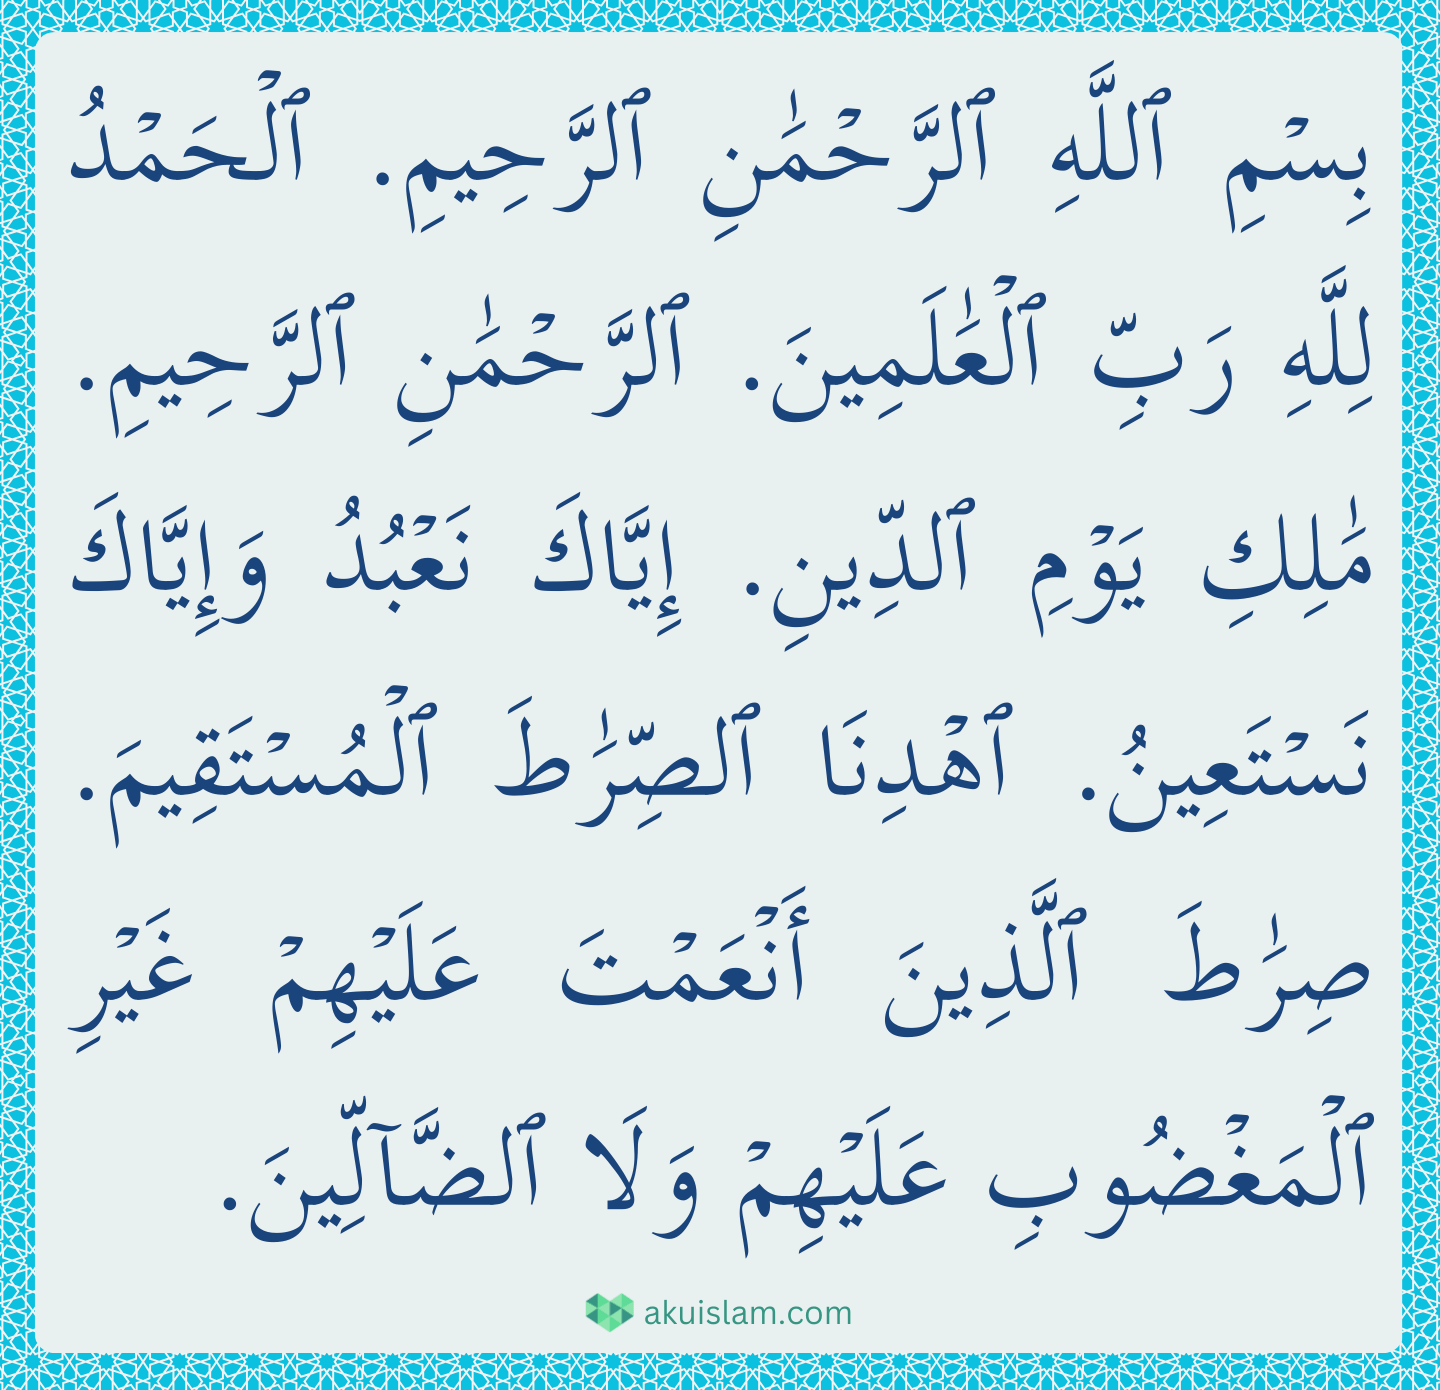 بِسۡمِ ٱللَّهِ ٱلرَّحۡمَٰنِ ٱلرَّحِيمِ. ٱلۡحَمۡدُ
لِلَّهِ رَبِّ ٱلۡعَٰلَمِينَ. ٱلرَّحۡمَٰنِ ٱلرَّحِيمِ.
مَٰلِكِ يَوۡمِ ٱلدِّينِ. إِيَّاكَ نَعۡبُدُ وَإِيَّاكَ
نَسۡتَعِينُ. ٱهۡدِنَا ٱلصِّرَٰطَ ٱلۡمُسۡتَقِيمَ.
صِرَٰطَ ٱلَّذِينَ أَنۡعَمۡتَ عَلَيۡهِمۡ غَيۡرِ
ٱلۡمَغۡضُوبِ عَلَيۡهِمۡ وَلَا ٱلضَّآلِّينَ.
akuislam.com